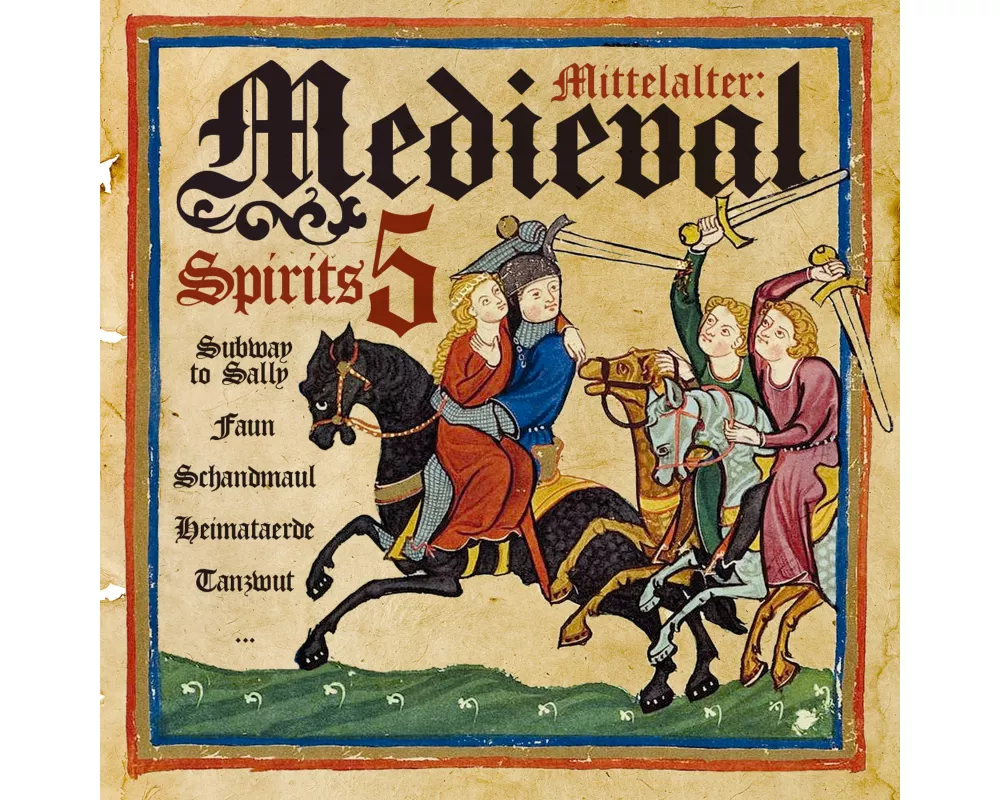 Mittelalter:
Medieval
Spirits 5
Subway
to Sally
Faun
Schandmaul
Heimataerde
Tanzwut
...